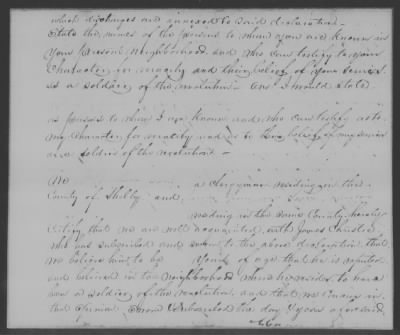 which discharges are annexed to said declaration —
State the names of the persons to whom you are known in
your present neighborhood and who can testify to your
Character for veracity and their belief of your services
as a soldier of the revolution — Ans I would state
as persons to whom I am known and who can testify as to
my Character for veracity and as to their belief of my services
as a soldier of the revolution —
We a Clergyman residing in the
County of Shelby and
residing in the same County hereby
Certify that we are well acquainted with James
who has subscribed and sworn to the above declaration that
we believe him to be years of age that he is reputed
and believed in the neighborhood where he resides to have
been a soldier of the revolution and that we concur in
that opinion Sworn & Subscribed the day & year aforesaid